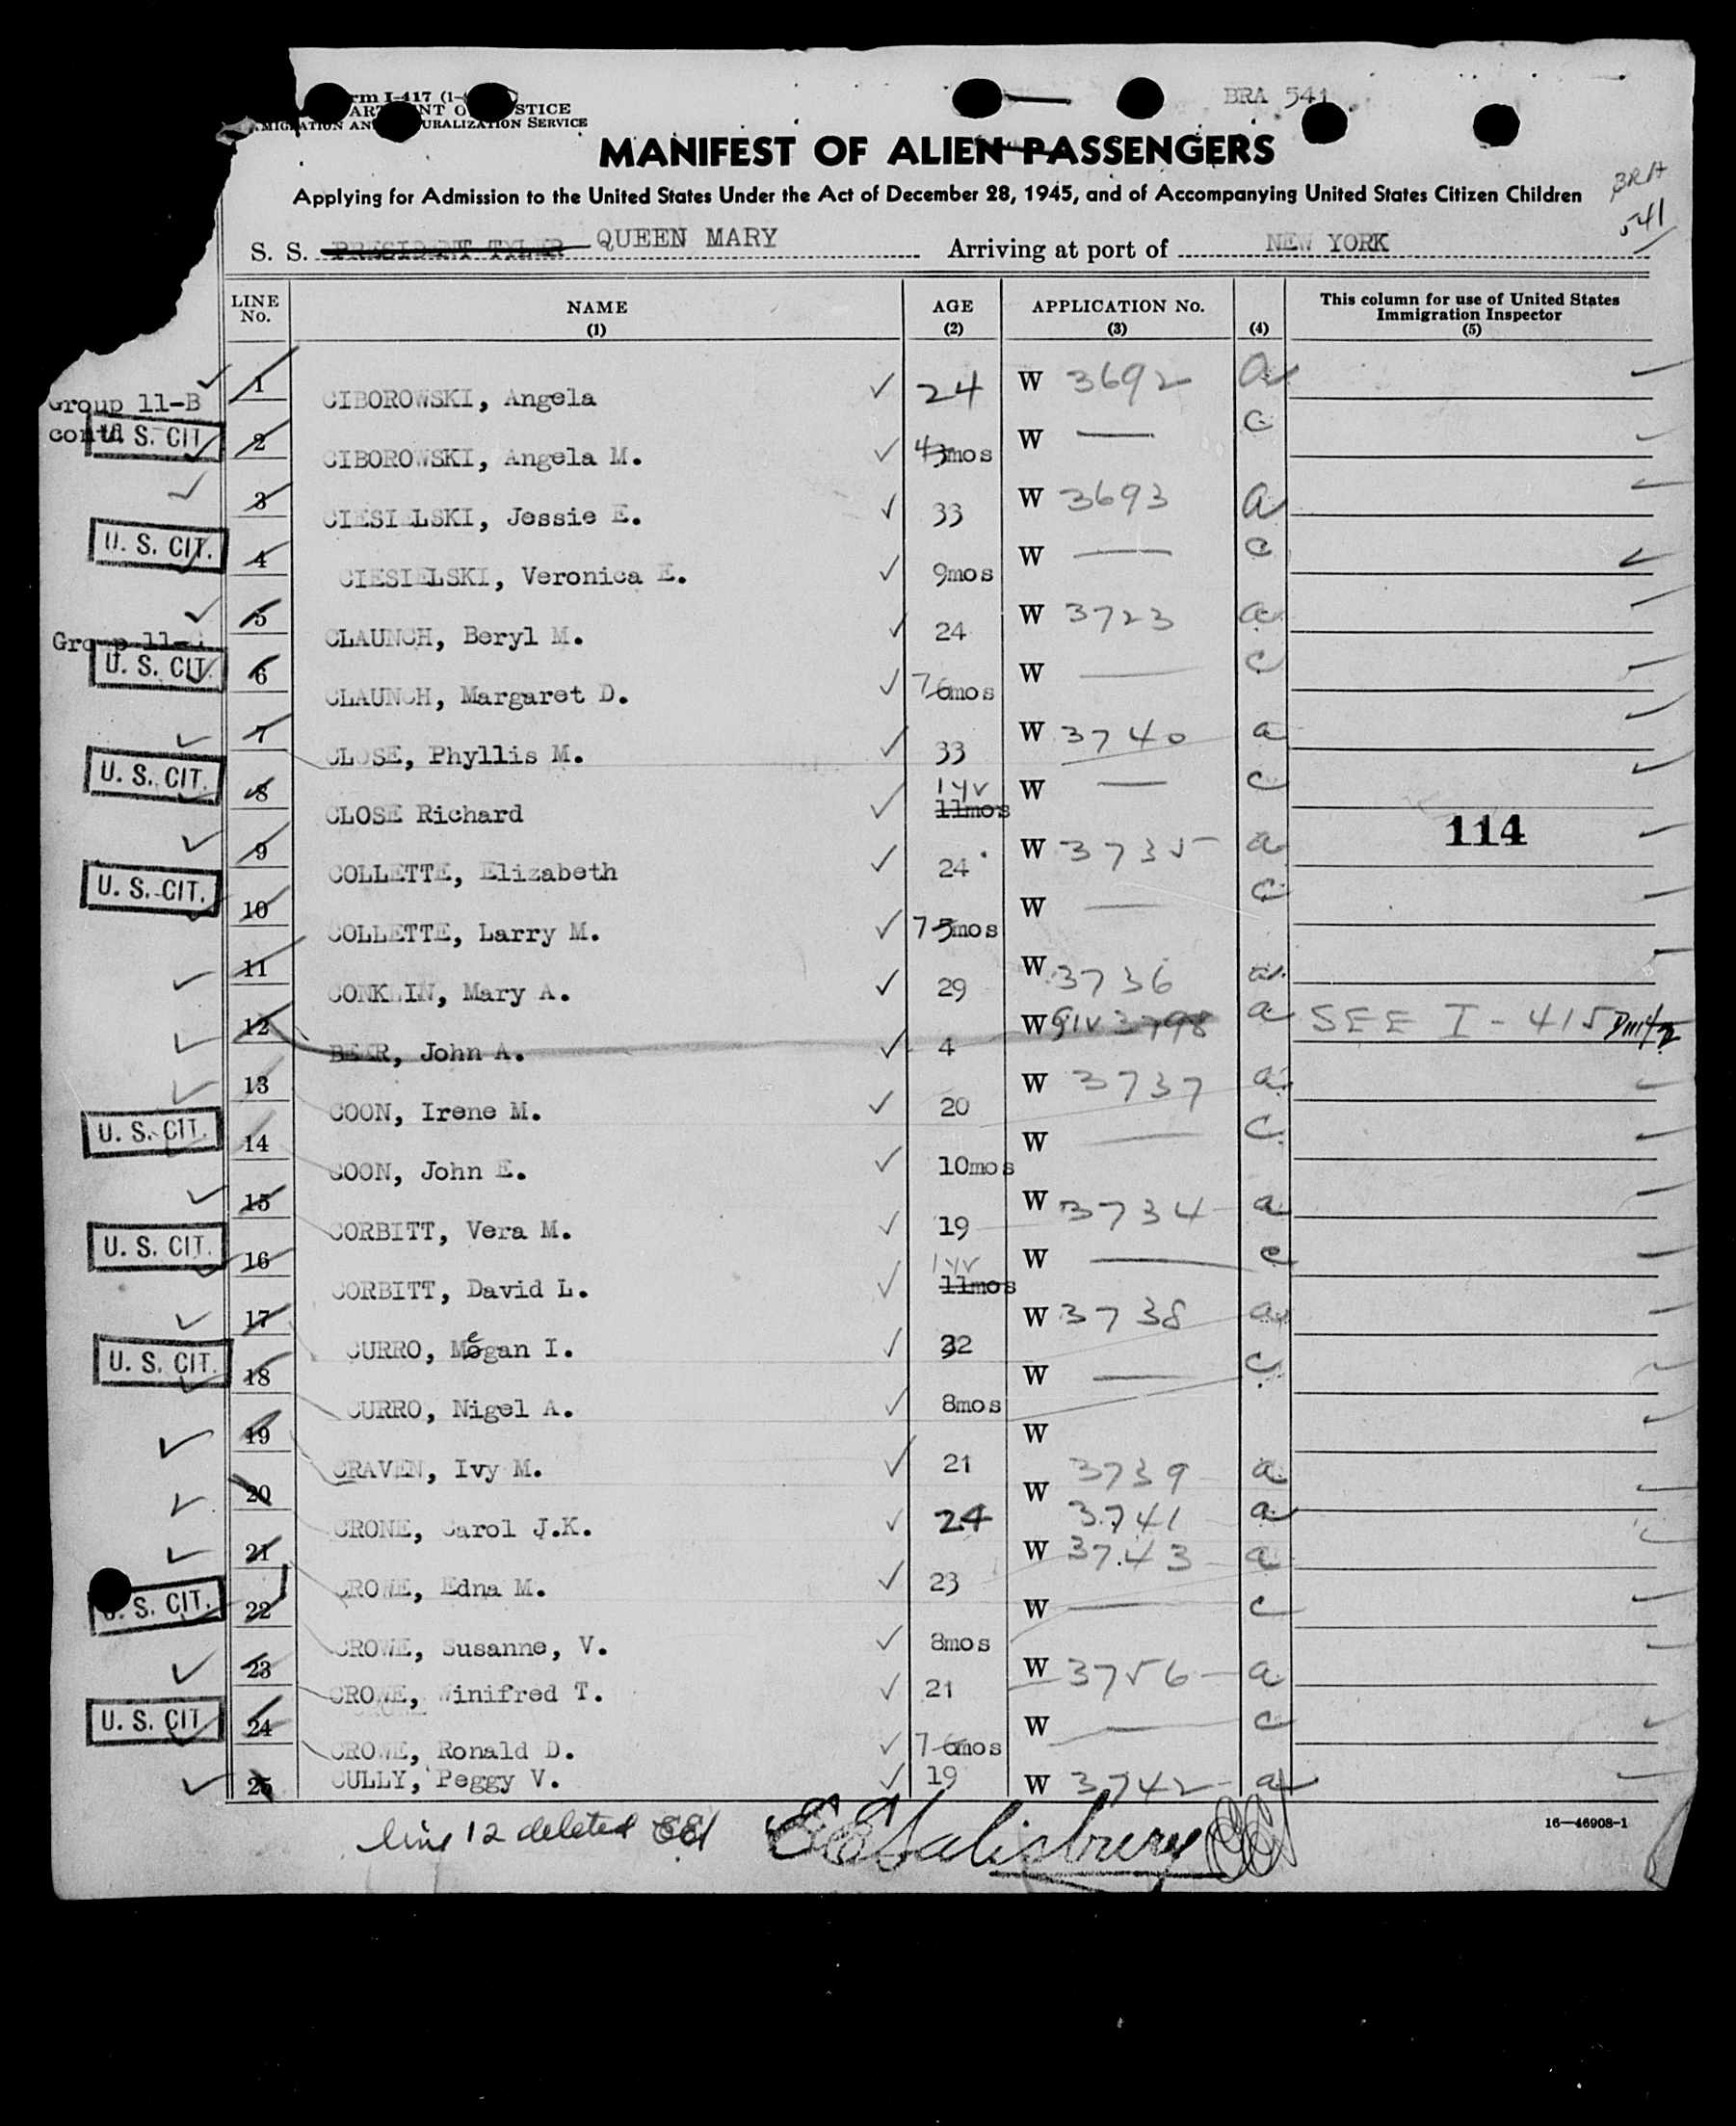 rm I-417 (1-
STICE
URALIZATION SERVICE
BRA 541
MANIFEST OF ALIEN PASSENGERS
Applying for Admission to the United States Under the Act of December 28, 1945, and of Accompanying United States Citizen Children
BRA
541
S. S. PRESIDENT TYLER QUEEN MARY Arriving at port of NEW YORK
LINE No. NAME (1) AGE (2) APPLICATION No. (3) (4) This column for use of United States Immigration Inspector (5)
Group 11-B 1 CIBOROWSKI, Angela 24 W 3692 a
cont'd U. S. CIT. 2 CIBOROWSKI, Angela M. 43mos W — c
3 CIESIELSKI, Jessie E. 33 W 3693 a
U. S. CIT. 4 CIESIELSKI, Veronica E. 9mos W — c
5 CLAUNCH, Beryl M. 24 W 3723 a
Group 11-C U. S. CIT. 6 CLAUNCH, Margaret D. 7 6mos W — c
7 CLOSE, Phyllis M. 33 W 3740 a
U. S. CIT. 8 CLOSE Richard 1 yr 11mos W — c
114
9 COLLETTE, Elizabeth 24 W 3735 a
U. S. CIT. 10 COLLETTE, Larry M. 7 5mos W — c
11 CONKLIN, Mary A. 29 W 3736 a
12 BEER, John A. 4 W 3798 a SEE I-415
13 COON, Irene M. 20 W 3737 a
U. S. CIT. 14 COON, John E. 10mos W — c
15 CORBITT, Vera M. 19 W 3734 a
U. S. CIT. 16 CORBITT, David L. 1 yr 11mos W — c
17 CURRO, Megan I. 32 W 3738 a
U. S. CIT. 18 CURRO, Nigel A. 8mos W — c
19 CRAVEN, Ivy M. 21 W 3739 a
20 CRONE, Carol J.K. 24 W 3741 a
21 CROWE, Edna M. 23 W 3743 a
U. S. CIT. 22 CROWE, Susanne, V. 8mos W — c
23 CROWE, Winifred T. 21 W 3756 a
U. S. CIT. 24 CROWE, Ronald D. 7 6mos W — c
25 CULLY, Peggy V. 19 W 3742 a
line 12 deleted EES
EESalisbury
16—46908-1